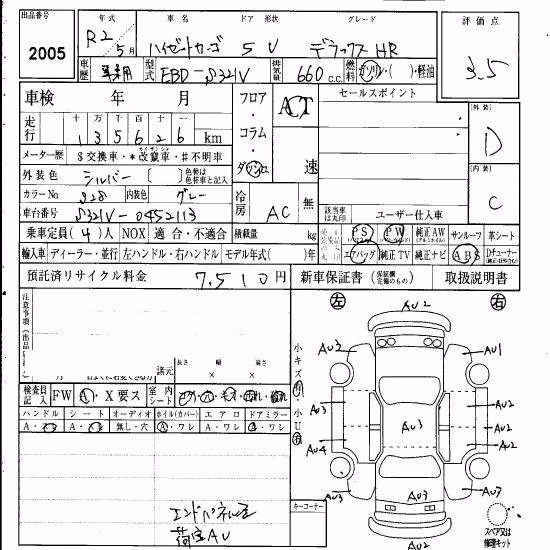 出品番号
2005
年式 車名 ドア 形状 グレード
R2年 5月 ハイゼットカーゴ 5 V デラックス HR
評価点
3.5
車歴 型式 EBD-S321V 排気量 660 c.c. 燃料 ガソリン・( )・軽油
車検 年 月
走行 十万 千百十
135626 km
メーター歴 $交換車・*改竄車・#不明車
外装色 シルバー ( ) 色替は色替車と記入
カラーNo S28 内装色 グレー
車台番号 S321V-0452113
乗車定員 (4)人 NOX 適合・不適合 積載量 kg
輸入車 ディーラー・並行 左ハンドル・右ハンドル モデル年式( )年
預託済リサイクル料金 7,510円
フロア・コラム・ダッシュ
AT
速
冷房 AC 無
セールスポイント
外装
D
内装
C
該当車は丸印 ユーザー仕入車
PS PW 純正AW サンルーフ 革シート
エアバッグ 純正TV 純正ナビ ABS
新車保証書 取扱説明書
注意事項
諸元 長さ 幅 高さ
× ×
検査員記入 FW A・X要ス 室内シート
ハンドル シート オーディオ ホイル(カバー) エアロ ドアミラー
無し・穴 A・ワレ A・ワレ A・ワレ
エンドパネル歪
荷室AU
キーコーナー
小キズ
小U
左 右
AU2
AU3 AU1
AU3 AU3 AU2
AU4 AU2
AU3 AU3 AU3
AU2
スペア又は修理キット